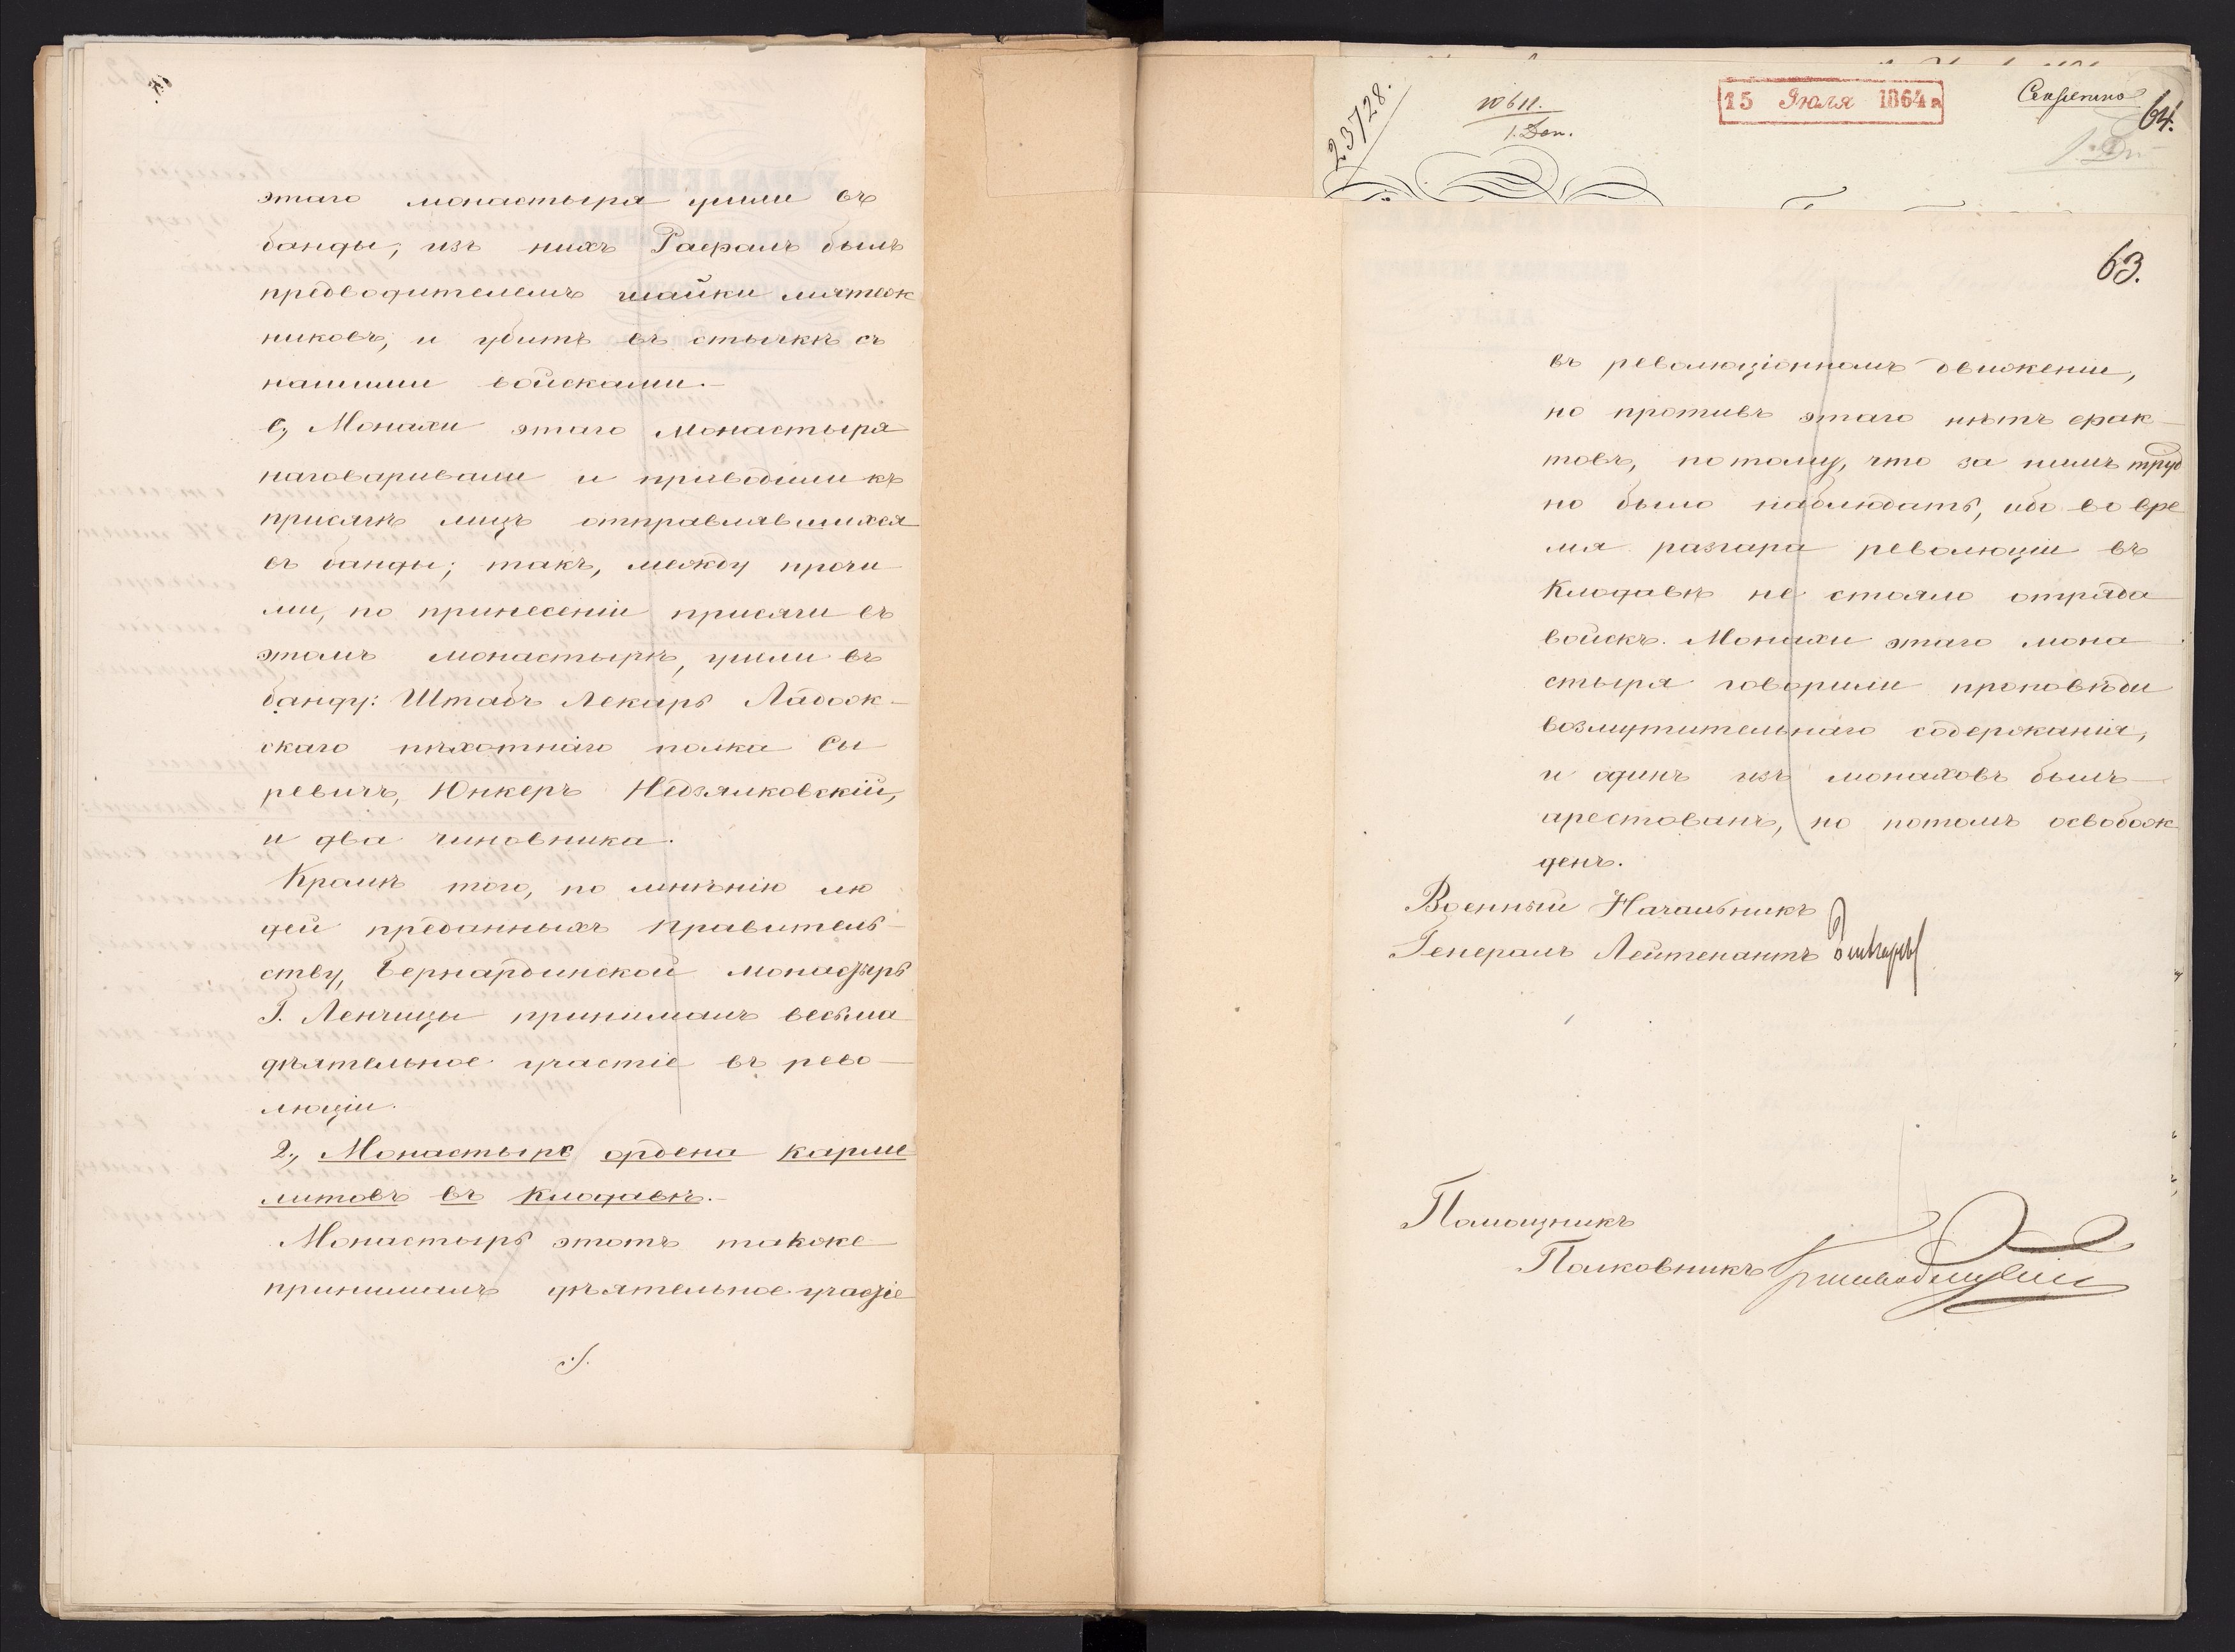 этаго монастыря ушли въ
банды, изъ нихъ Рафаилъ былъ
предводителемъ шайки мятеж
никовъ, и убитъ въ стычкѣ съ
нашими войсками.—
с, Монахи этаго монастыря
наговаривали и приводили къ
присягѣ лицъ отправлявшихся
въ банды; такъ, между прочи
ми, по принесеніи присяги въ
этомъ монастырѣ, ушли въ
банду: Штабъ Лекарь Ладож-
скаго пѣхотнаго полка Сы
ревичъ, Юнкеръ Недзялковскій,
и два чиновника.
Кромѣ того, по мнѣнію лю
дей преданныхъ Правитель-
ству, Бернардинской монастырь
Г. Ленчицы принималъ весьма
дѣятельное участіе въ рево-
люціи.
2, Монастырь ордена карме
литовъ въ Клодавѣ.—
Монастырь этотъ также
принималъ дѣятельное участіе
./.
23728.
10611.
1. Деп.
15 Июля 1864 г
Секретно
64.
63.
въ революціонномъ движеніи,
но противъ этаго нѣтъ фак-
товъ, потому, что за нимъ труд
но было наблюдать, ибо во вре
мя разгара революціи въ
Клодавѣ не стояло отряда
войскъ. Монахи этаго мона
стыря говорили проповѣди
возмутительнаго содержанія,
и одинъ изъ монаховъ былъ
арестованъ, но потомъ освобож
денъ.
Военный Начальникъ
Генералъ Лейтенантъ
Помощникъ
Полковникъ